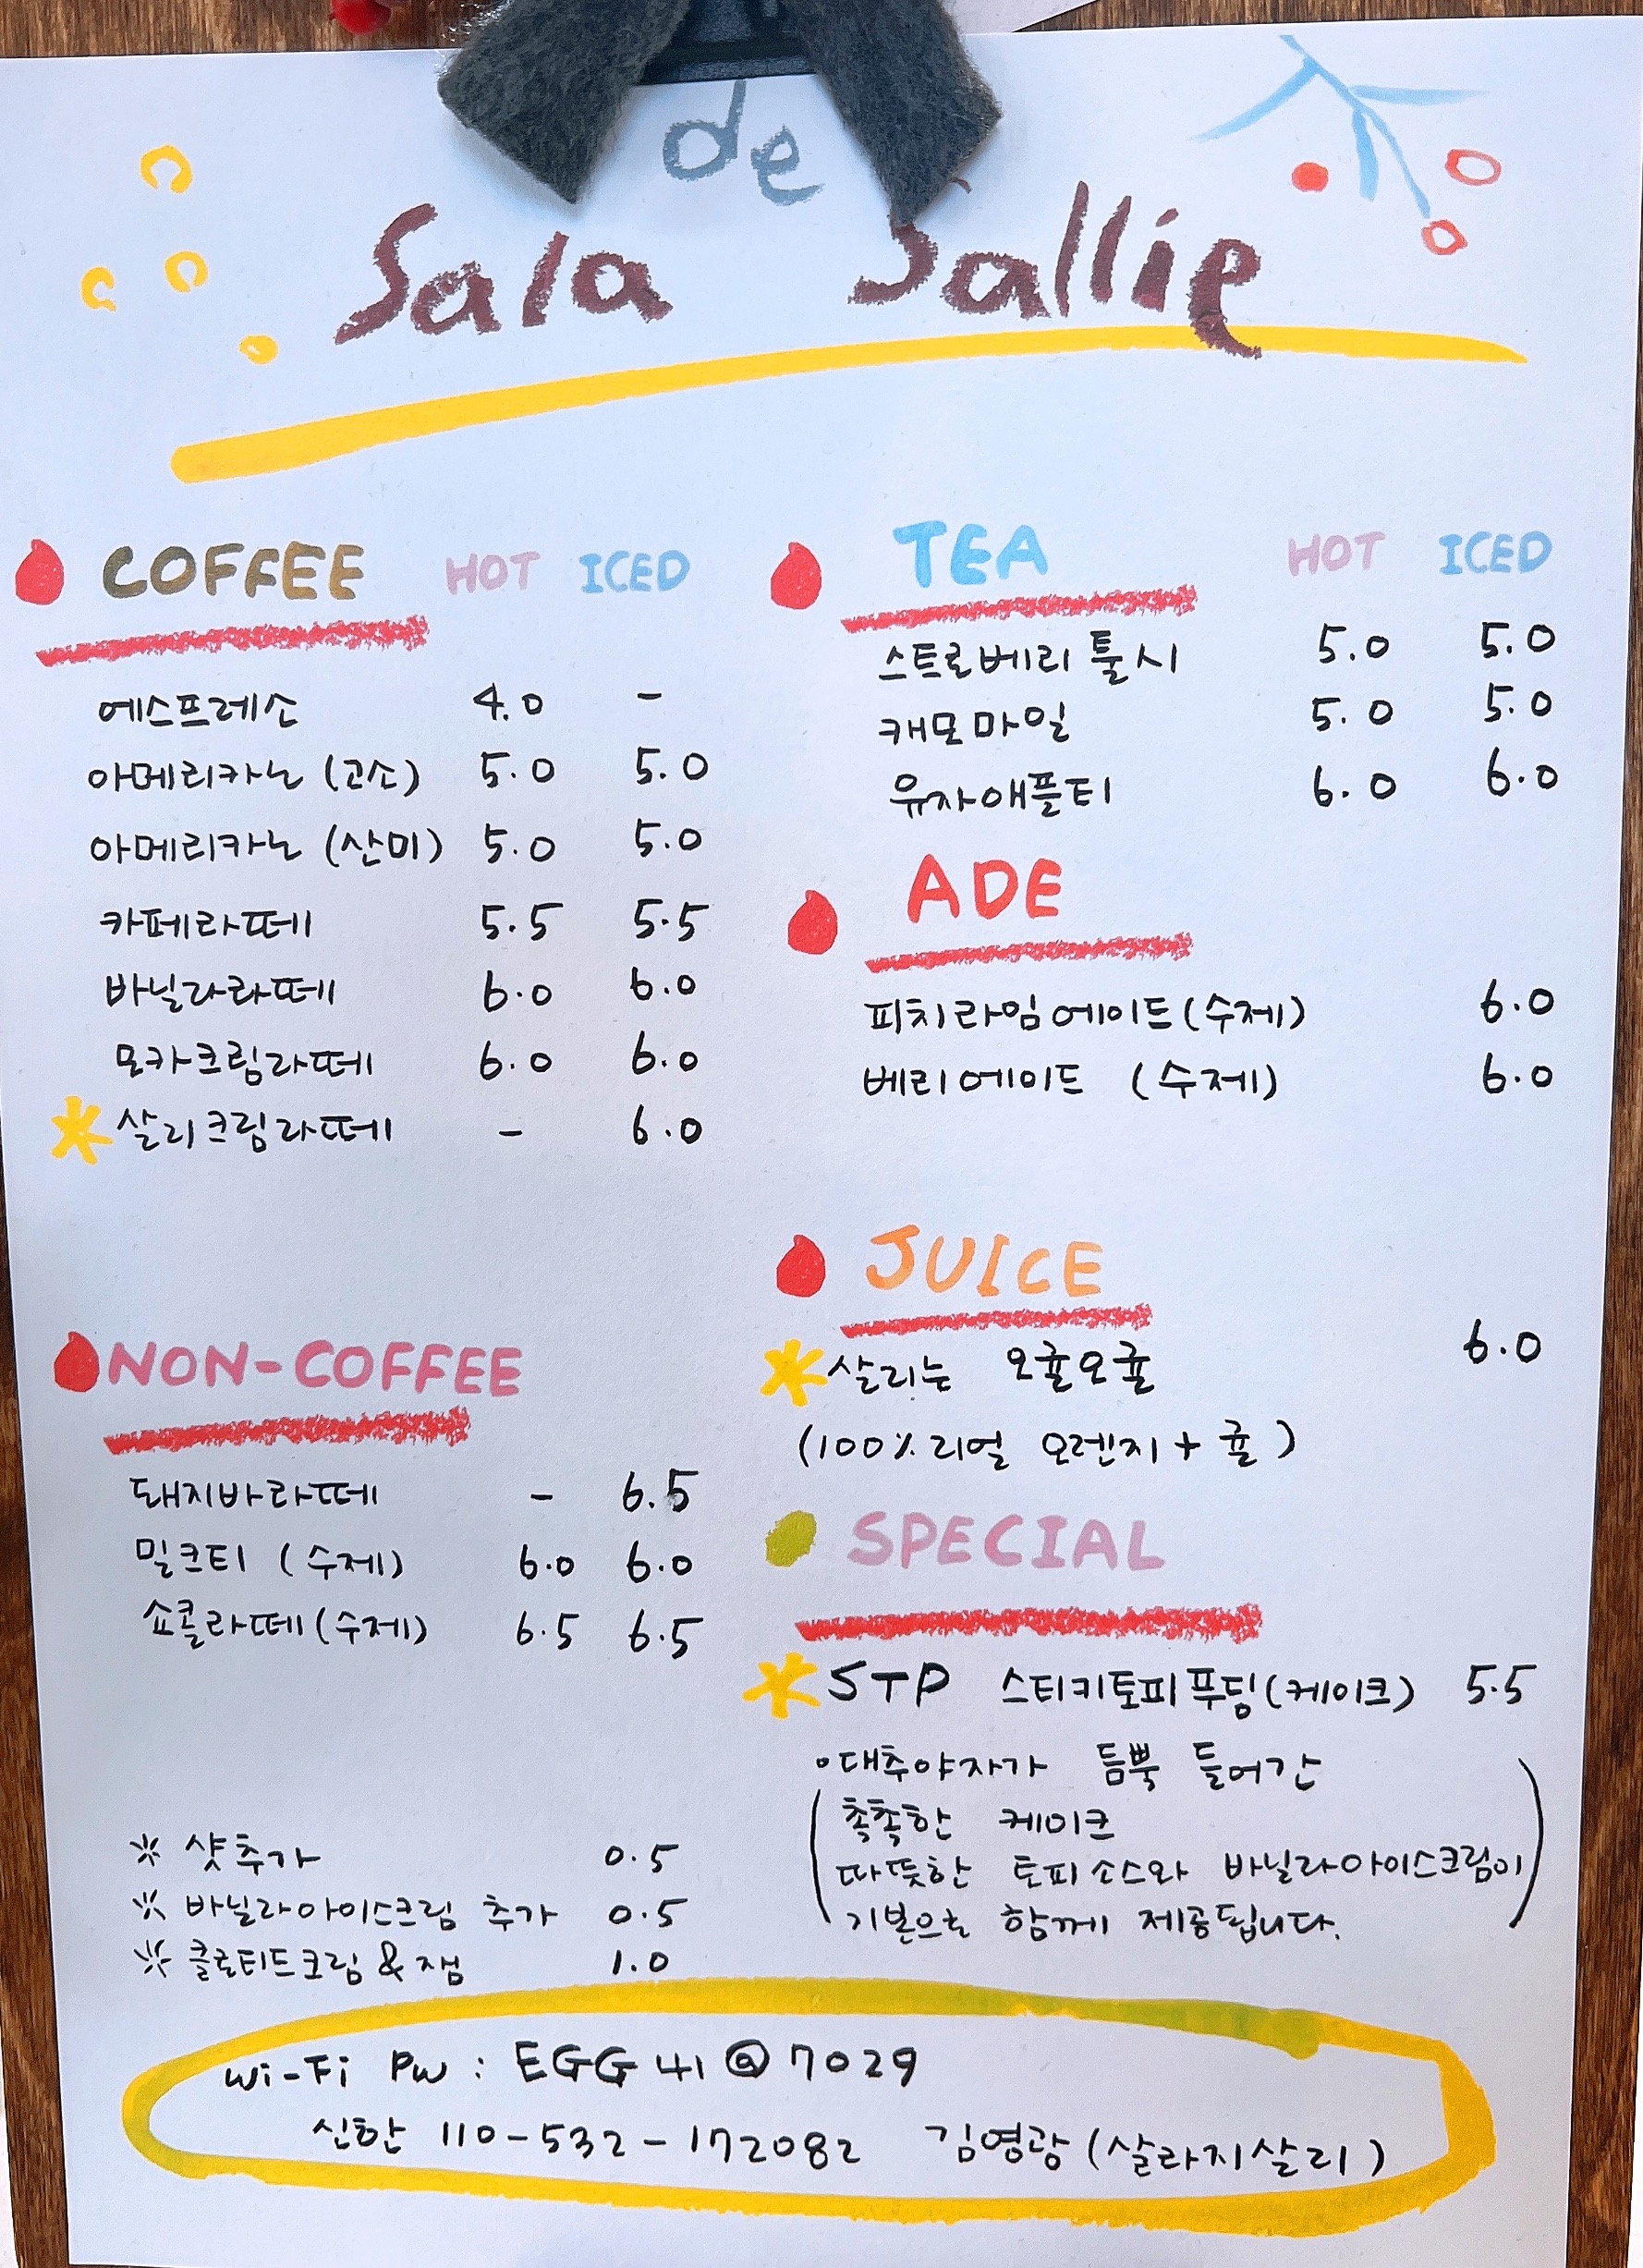 de
Sala Sallie
COFFEE HOT ICED
에스프레소 4.0 -
아메리카노 (고소) 5.0 5.0
아메리카노 (산미) 5.0 5.0
카페라떼 5.5 5.5
바닐라라떼 6.0 6.0
모카크림라떼 6.0 6.0
살리크림라떼 - 6.0
NON-COFFEE
돼지바라떼 - 6.5
밀크티 (수제) 6.0 6.0
쇼콜라떼(수제) 6.5 6.5
※ 샷추가 0.5
※ 바닐라아이스크림 추가 0.5
※ 클로티드크림 & 잼 1.0
TEA HOT ICED
스트로베리 툴시 5.0 5.0
캐모마일 5.0 5.0
유자애플티 6.0 6.0
ADE
피치라임에이드(수제) 6.0
베리에이드 (수제) 6.0
JUICE
살리는 오귤오귤 6.0
(100% 리얼 오렌지 + 귤)
SPECIAL
STP 스티키토피푸딩(케이크) 5.5
•대추야자가 듬뿍 들어간
(촉촉한 케이크
따뜻한 토피소스와 바닐라아이스크림이
기본으로 함께 제공됩니다.)
Wi-Fi PW : EGG41@7029
신한 110-532-172082 김영광(살라지살리)